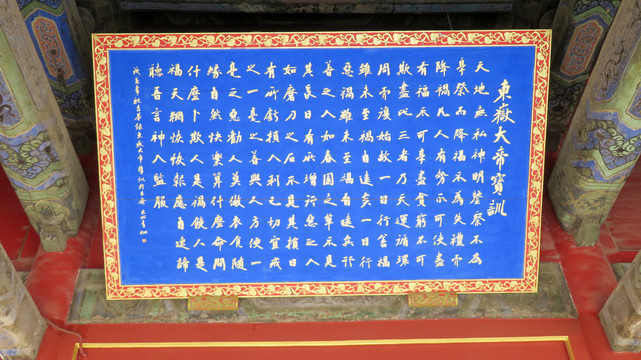 東嶽大帝寶訓
天地無私神明鑒察不為
享祭而降福不為失禮而
降禍凡人有勢不可使盡
有福不可享盡貧窮不可
欺盡此三者乃天運循環
周而復始故一日行善福
雖未至禍自遠矣一日行
惡禍雖未至福自遠矣行
善之人如春園之草不見
其長日有所增行惡之人
如磨刀之石不見其損日
有所虧損人利己切宜戒
之一毫之善與人方便一
毫之惡勸人莫作衣食隨
緣自然快樂算什麼命問
什麼卜欺人是禍饒人是
福天網恢恢報應甚速諦
聽吾言神人監服